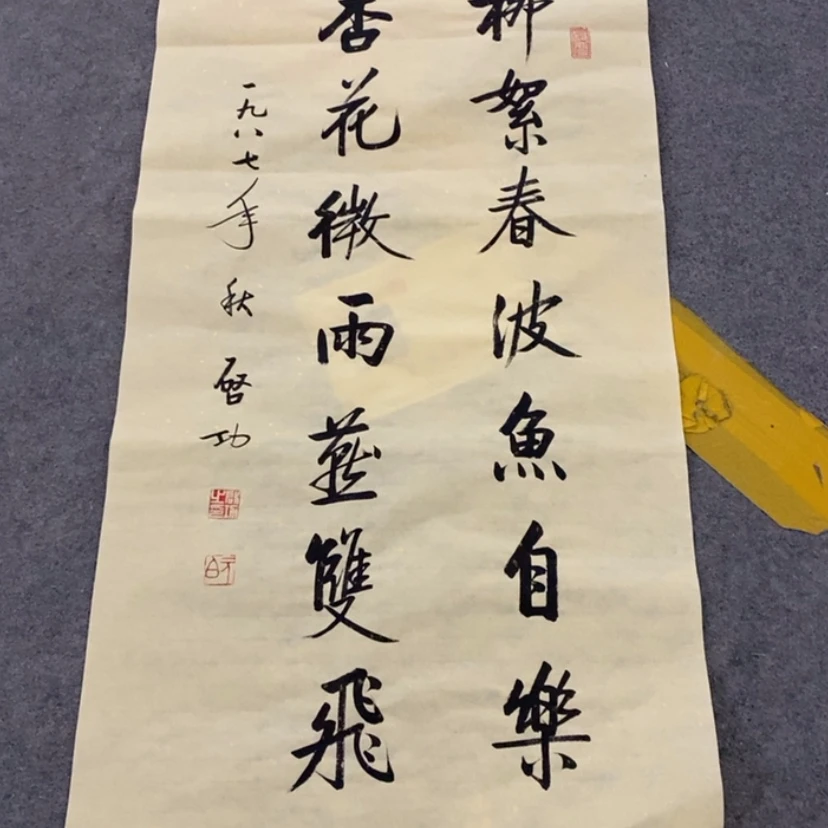 柳絮春波魚自樂
杏花微雨燕雙飛
一九八七年秋 啓功